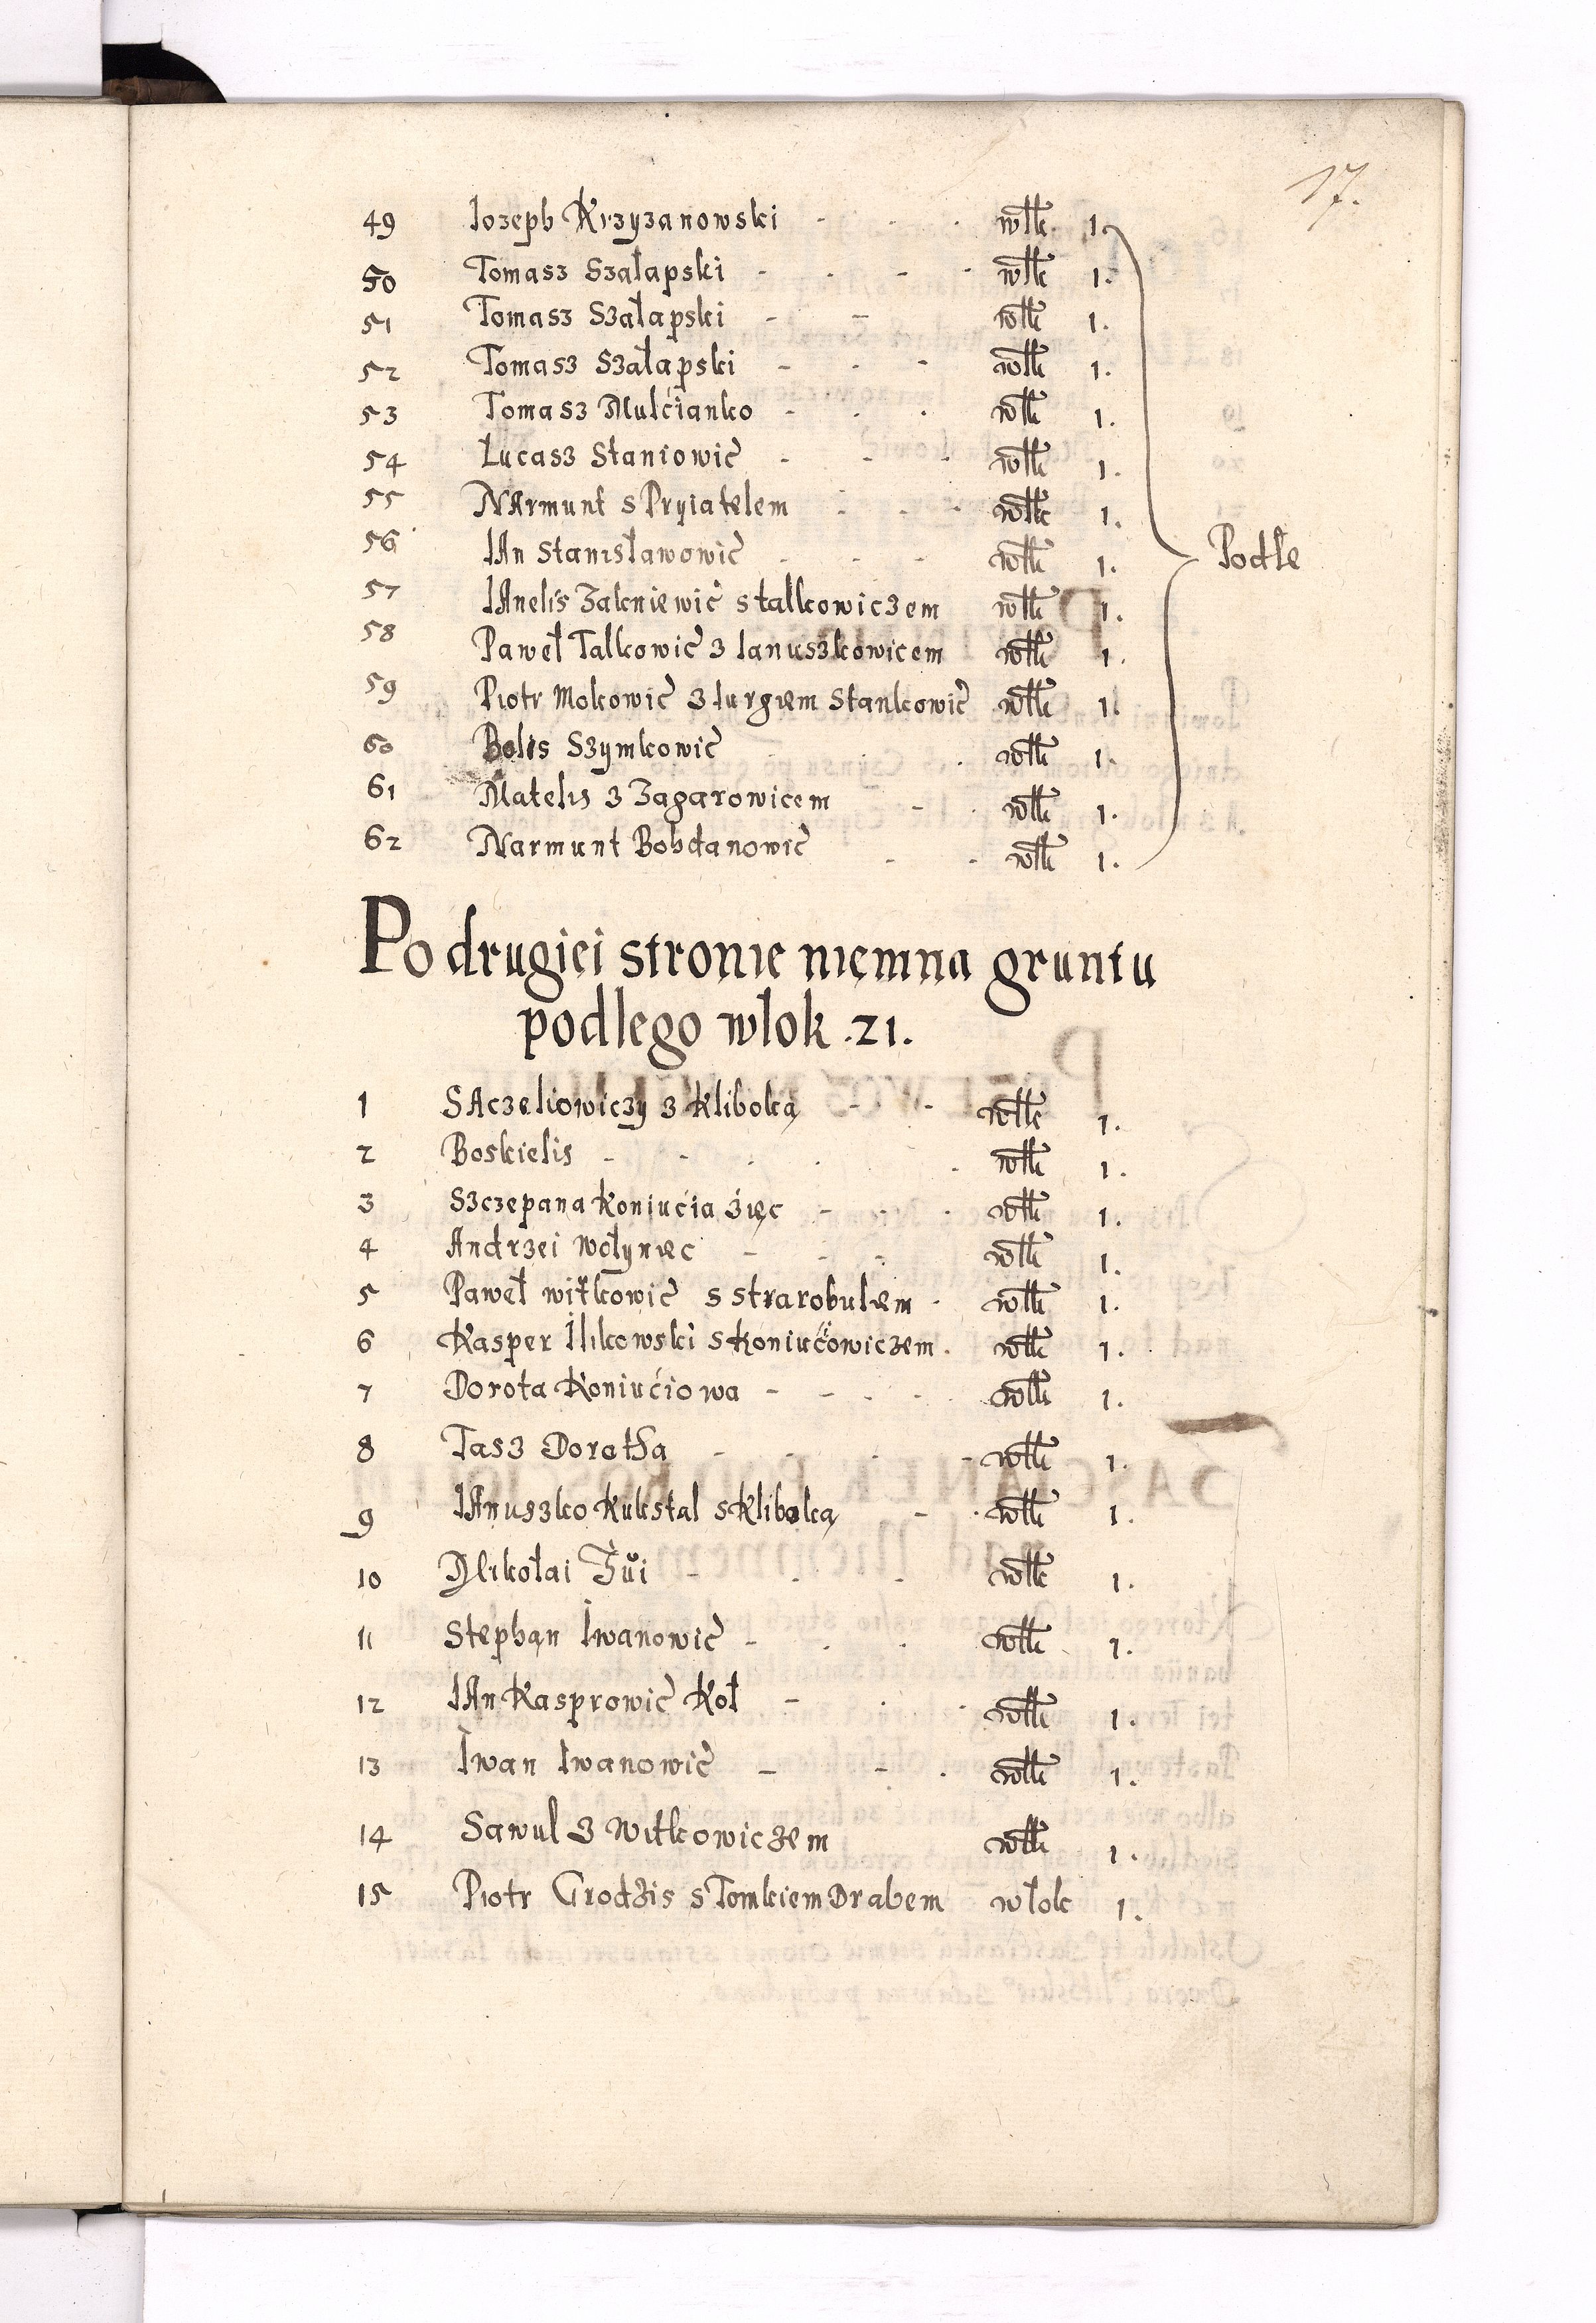 17.
49 Iozeph Krzyzanowski - - - włk 1.
50 Tomasz Szałapski - - - - włk 1.
51 Tomasz Szałapski - - włk 1.
52 Tomasz Szałapski - - - włk 1.
53 Tomasz Mulćianko - - - włk 1.
54 Łucasz Staniowic - - - włk 1.
55 NArmunt s Pryiatelem - - - włk 1.
56 IAn Stanisławowic - - - włk 1.
Podłe
57 IAnelis Zakniewic s talkowiczem włk 1.
58 Paweł Talkowic z Ianuszkowicem włk 1.
59 Piotr Mokowic z Iurgiem Stankowic włk 1.
60 Bolis Szymkowic - - - włk 1.
61 Matelis z Zagarowicem - - włk 1.
62 Narmunt Bohdanowic - - włk 1.
Po drugiei stronie niemna gruntu
podlego wlok .21.
1 SAczeliowiczy z Klibolcą - - włk 1.
2 Boskielis - - - - - włk 1.
3 Szczepana Koniućia Zięc - - - włk 1.
4 Andrzei Wołyniec - - - włk 1.
5 Paweł witkowic s strarobulem - włk 1.
6 Kasper Ilikowski s Koniućowiczem. włk 1.
7 Dorota Koniućiowa - - - - włk 1.
8 Tasz Doretha - - - - włk 1.
9 IAnuszko Kukstal s Klibolcą - - włk 1.
10 Mikołai Zŭi - - - włk 1.
11 Stephan Iwanowic - - - włk 1.
12 IAn Kasprowic Koł - - - włk 1.
13 Iwan Iwanowic - - - włk 1.
14 Sawul z Witkowiczem włk 1.
15 Piotr Grodzis s Tomkiem Drabem włok 1.